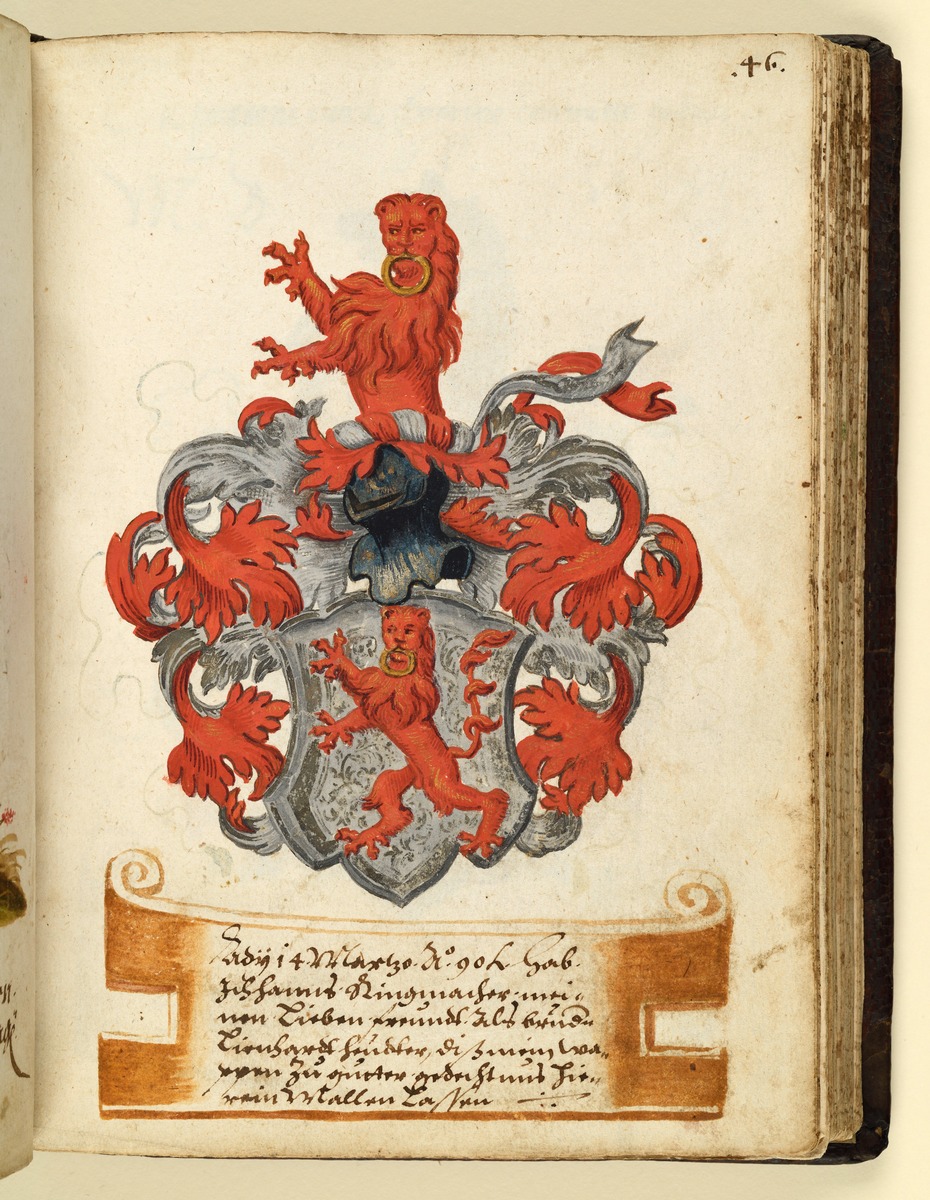 .46.
Ady 14 Martzo A° 90 hab
Ich hanns Ringmacher mei=
nen Lieben freundt als bruder
Lienhardt , diß mein Wa=
ppen zu gutter gedechtnus hie=
rein Mallen Lassen